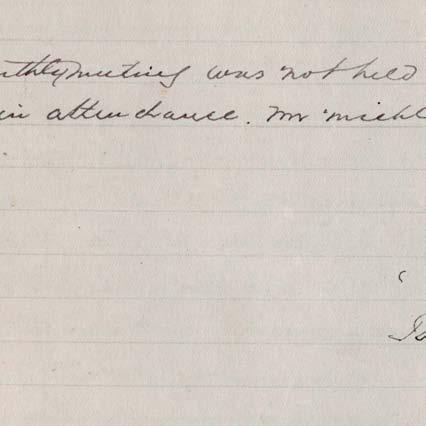 nthly meeting was not held
in attendance. Mr Michl